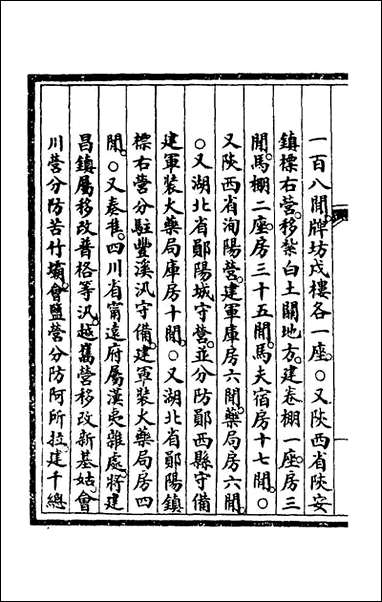 一百八間。牌坊戍樓各一座。○又陝西省陝安
鎮標右營。移紮白土關地方。建卷棚一座。房三
間。馬棚二座。房三十五間。馬夫宿房十七間。○
又陝西省洵陽營。建軍庫房六間。藥局房六間。
○又湖北省鄖陽城守營。並分防鄖西縣守備
建軍裝火藥局庫房十間。○又湖北省鄖陽鎮
標右營分駐豐溪汛守備。建軍裝火藥局房四
間。○又奏准。四川省甯遠府屬漢夷雜處。將建
昌鎮屬移改普格等汛。越嶲營移改新基姑。會
川營分防苦竹壩。會鹽營分防阿所拉。建千總